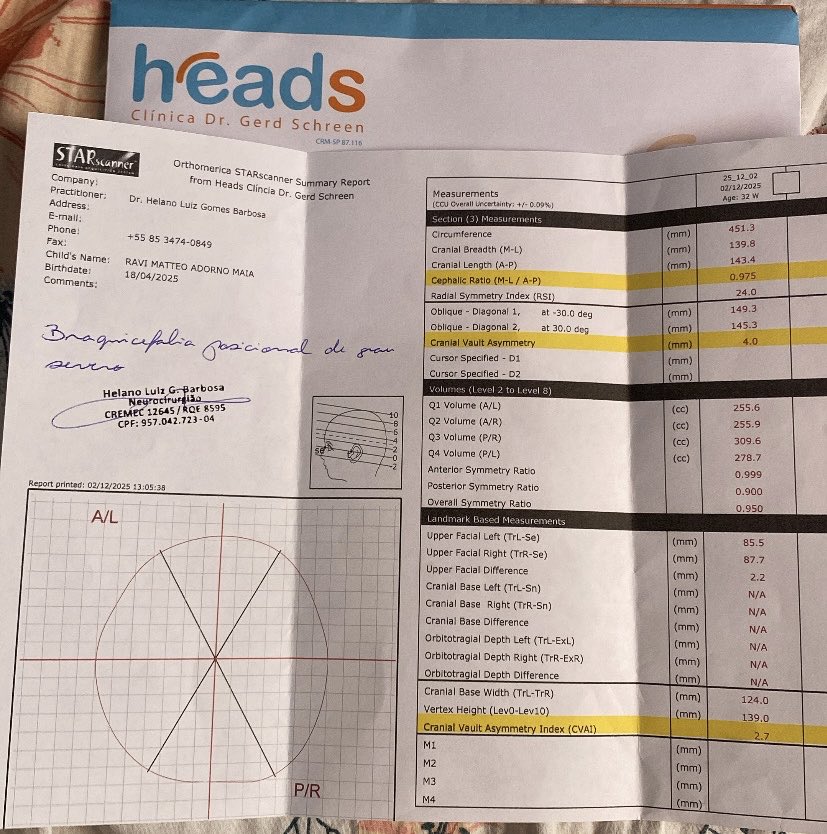 heads
Clínica Dr. Gerd Schreen
CRM-SP 87.116
STARscanner
Orthomerica STARscanner Summary Report
from Heads Clincia Dr. Gerd Schreen
Company:
Practitioner: Dr. Helano Luiz Gomes Barbosa
Address:
E-mail:
Phone: +55 85 3474-0849
Fax:
Child's Name: RAVI MATTEO ADORNO MAIA
Birthdate: 18/04/2025
Comments:
Braquicefalia posicional de grau
severo
Helano Luiz G. Barbosa
Neurocirurgião
CREMEC 12645 / RQE 8595
CPF: 957.042.723-04
10
8
6
4
2
0
-2
Se
Report printed: 02/12/2025 13:05:38
A/L
P/R
25_12_02
02/12/2025
Age: 32 W
Measurements
(CCU Overall Uncertainty: +/- 0.09%)
Section (3) Measurements
Circumference (mm) 451.3
Cranial Breadth (M-L) (mm) 139.8
Cranial Length (A-P) (mm) 143.4
Cephalic Ratio (M-L / A-P) 0.975
Radial Symmetry Index (RSI) 24.0
Oblique - Diagonal 1, at -30.0 deg (mm) 149.3
Oblique - Diagonal 2, at 30.0 deg (mm) 145.3
Cranial Vault Asymmetry (mm) 4.0
Cursor Specified - D1 (mm)
Cursor Specified - D2 (mm)
Volumes (Level 2 to Level 8)
Q1 Volume (A/L) (cc) 255.6
Q2 Volume (A/R) (cc) 255.9
Q3 Volume (P/R) (cc) 309.6
Q4 Volume (P/L) (cc) 278.7
Anterior Symmetry Ratio 0.999
Posterior Symmetry Ratio 0.900
Overall Symmetry Ratio 0.950
Landmark Based Measurements
Upper Facial Left (TrL-Se) (mm) 85.5
Upper Facial Right (TrR-Se) (mm) 87.7
Upper Facial Difference (mm) 2.2
Cranial Base Left (TrL-Sn) (mm) N/A
Cranial Base Right (TrR-Sn) (mm) N/A
Cranial Base Difference (mm) N/A
Orbitotragial Depth Left (TrL-ExL) (mm) N/A
Orbitotragial Depth Right (TrR-ExR) (mm) N/A
Orbitotragial Depth Difference (mm) N/A
Cranial Base Width (TrL-TrR) (mm) 124.0
Vertex Height (Lev0-Lev10) (mm) 139.0
Cranial Vault Asymmetry Index (CVAI) 2.7
M1 (mm)
M2 (mm)
M3 (mm)
M4 (mm)